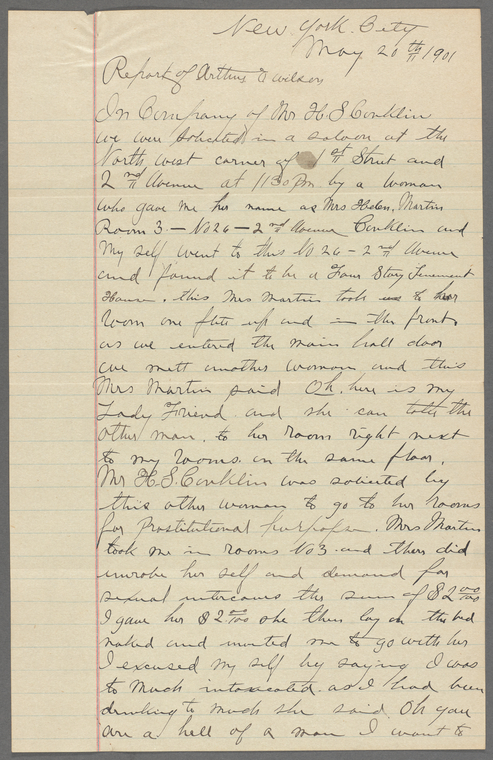 New York City
May 20th 1901
Report of Arthur E Wilson
In Company of Mr H.S. Conklin
we were solicited in a saloon at the
North west corner of 1st Street and
2nd Avenue at 11 30 Pm by a woman
who gave me her name as Mrs Helen, Martin
Room 3 — No 26 — 2nd Avenue Conklin and
my self went to this No 26 — 2nd Avenue
and found it to be a Four Story Tenement
House, this Mrs Martin took us to her
room one flite up and in the front
as we entered the main hall door
we mett another woman and this
Mrs Martin said Oh, here is my
Lady Friend and she can take the
other man, to her room right next
to my rooms on the same floor,
Mr H.S. Conklin was solicited by
this other woman to go to her rooms
for Prostitutional purposes. Mrs Martin
took me in rooms No 3 and there did
unrobe her self and demand for
sexual intercourse the sum of $2 00/100
I gave her $2 00/100 she then lay on the bed
naked and invited me to go with her
I excused my self by saying I was
to much intoxicated as I had been
drinking to much she said Oh you
are a hell of a man I want to